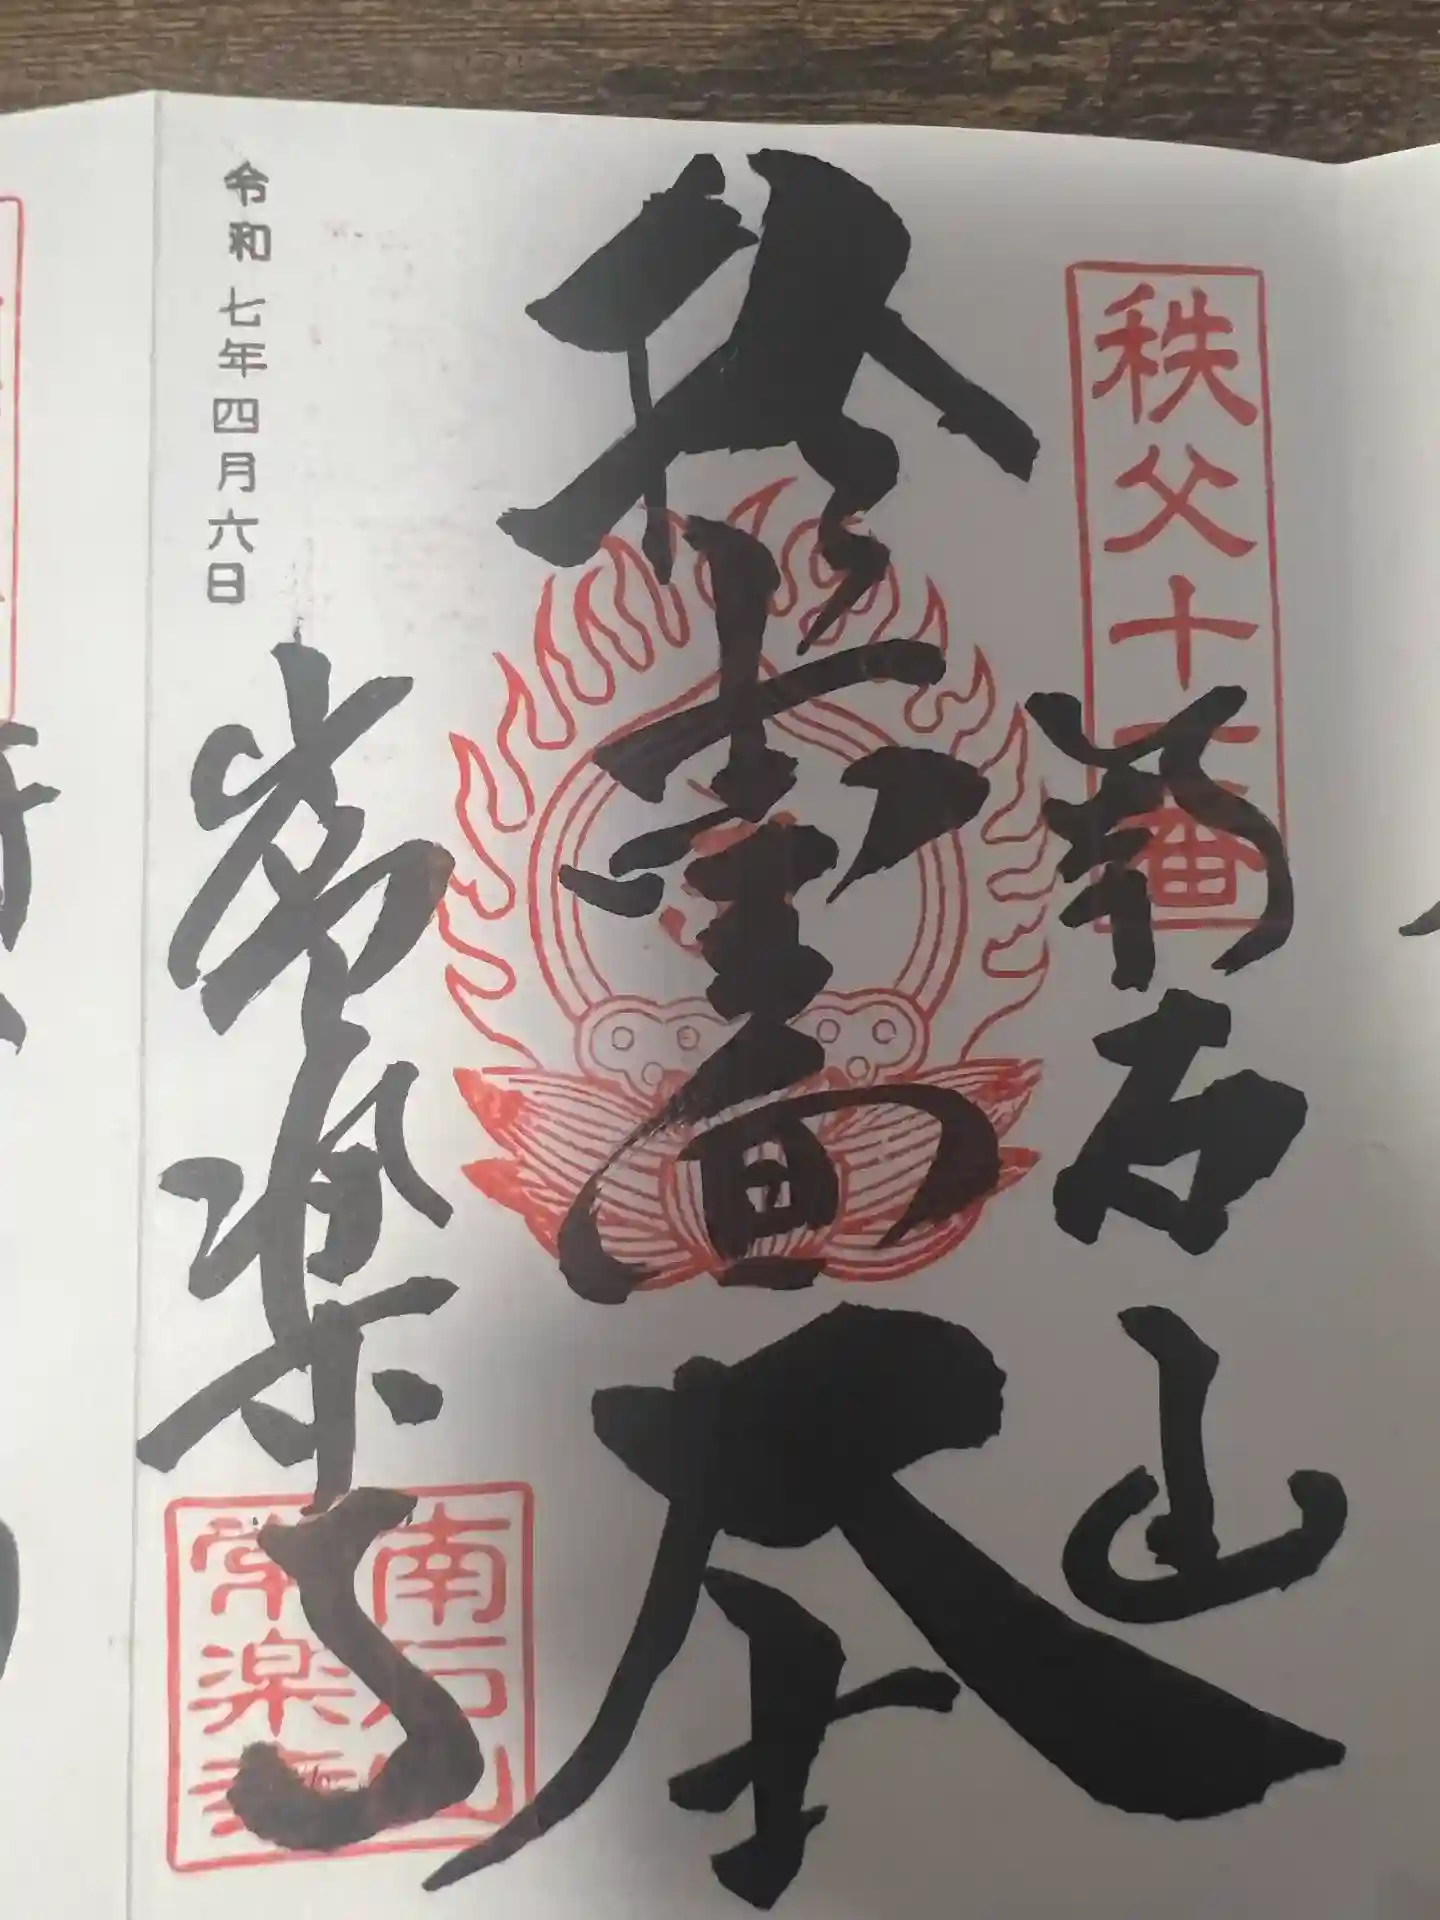 秩父十一番
南石山
拾壹面大士
令和七年四月六日
常楽寺
南石山
常楽寺